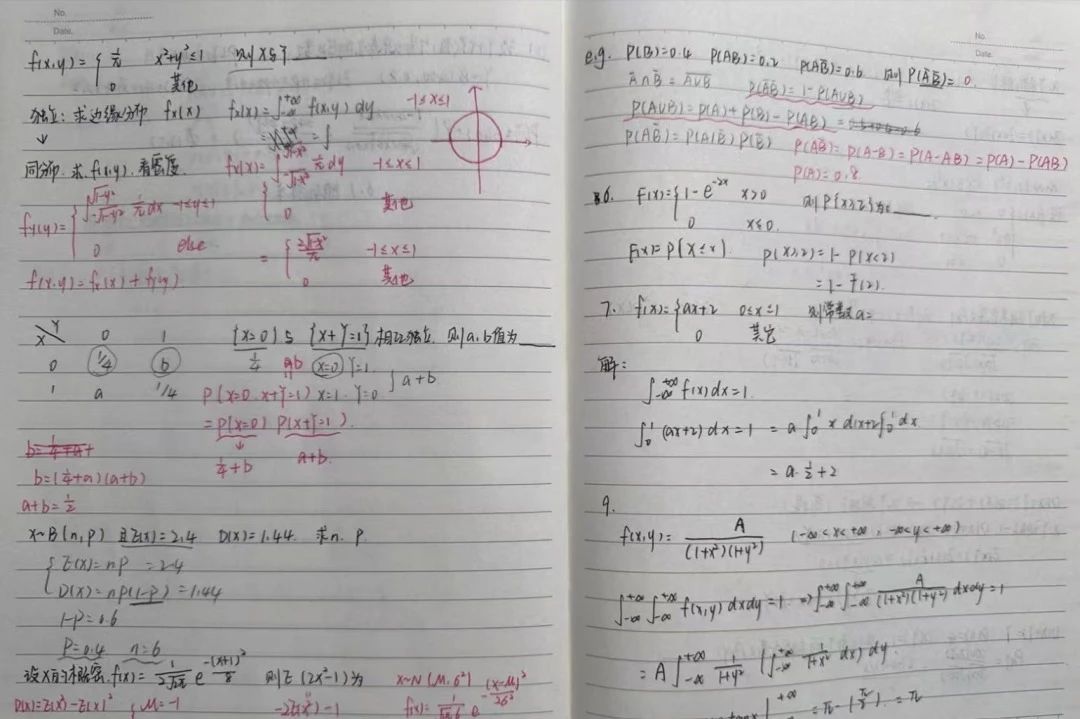 No.
Date.
f(x,y)= { 1/π x²+y²≤1 则X与Y ____
0 其他
独立: 求边缘分布 fx(x) fx(x)=∫_{-∞}^{+∞} f(x,y) dy -1≤x≤1
↓
同分布. 求 f(x,y). 看密度. fx(x)= { ∫_{-√1-x²}^{√1-x²} 1/π dy -1≤x≤1
0 其他
fy(y)= { ∫_{-√1-y²}^{√1-y²} 1/π dx -1≤y≤1
0 else
= { 2√1-x²/π -1≤x≤1
0 其他
f(x,y)=fx(x)+fy(y)
X Y 0 1 {x=0} 与 {x+Y=1} 相互独立, 则a,b值为____
0 1/4 b 1/4 ab x=0 Y=1
1 a 1/4 P(x=0, x+Y=1) x=1, Y=0 } a+b
=P(x=0) P(x+Y=1).
1/4+b a+b.
b=1/4+a+
b=(1/4+a)(a+b)
a+b=1/2
X~B(n,p) 且E(x)=2.4 D(x)=1.44. 求n. p.
{ E(x)=np =2.4
D(x)=np(1-p)=1.44
1-p=0.6
P=0.4 n=6
设X的概密. f(x)= 1/(2√2π) e^{-(x+1)²/8} 则E(2x²-1)为 X~N(μ,6²)
D(x)=E(x²)-E(x)² { μ=-1 -2E(x²)-1 f(x)= 1/(√2π6) e^{-(x-μ)²/26²}
No.
Date.
e.g. P(B)=0.4 P(AB)=0.2 P(AB̄)=0.6 则P(ĀB̄)=0.
Ā∩B̄ = A∪B P(ĀB̄)=1-P(A∪B)
P(A∪B)=P(A)+P(B)-P(AB)
P(AB̄)=P(A|B̄)P(B̄) P(AB̄)=P(A-B)=P(A-AB)=P(A)-P(AB)
P(A)=0.8
6. F(x)= { 1-e^{-2x} x>0 则P{x>2}为____.
0 x≤0.
F(x)=P{X≤x}. P(x>2)=1-P(x<2)
=1-F(2).
7. f(x)= { ax+2 0≤x≤1 则常数a=
0 其它
解:
∫_{-∞}^{+∞} f(x)dx=1.
∫_0^1 (ax+2)dx=1 =a∫_0^1 x dx+2∫_0^1 dx
=a·1/2+2
9.
f(x,y)= A/((1+x²)(1+y²)) (-∞<x<+∞, -∞<y<+∞)
∫_{-∞}^{+∞}∫_{-∞}^{+∞} f(x,y)dxdy=1 ⇒ ∫_{-∞}^{+∞}∫_{-∞}^{+∞} A/((1+x²)(1+y²)) dxdy=1
=A∫_{-∞}^{+∞} 1/(1+y²) (∫_{-∞}^{+∞} 1/(1+x²) dx) dy.